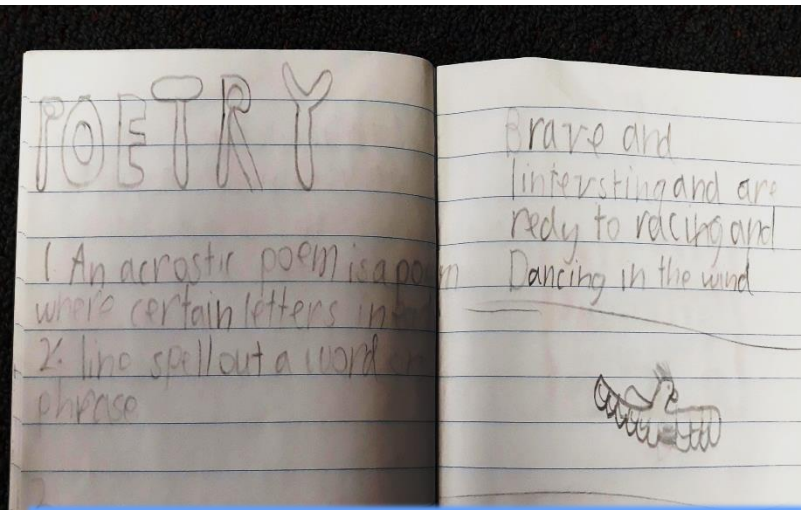 POETRY
1. An acrostic poem is a poem
where certain letters in
2. line spell out a word or
phrase
Brave and
Iintersting and are
redy to racing and
Dancing in the wind